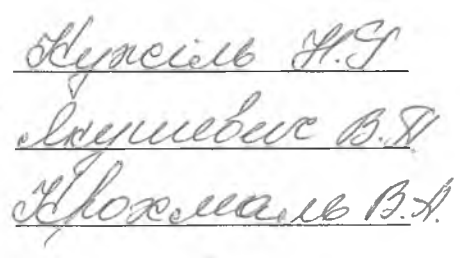 Кужіль Н.Г
Якушевич В.П
Крохмаль В.А.